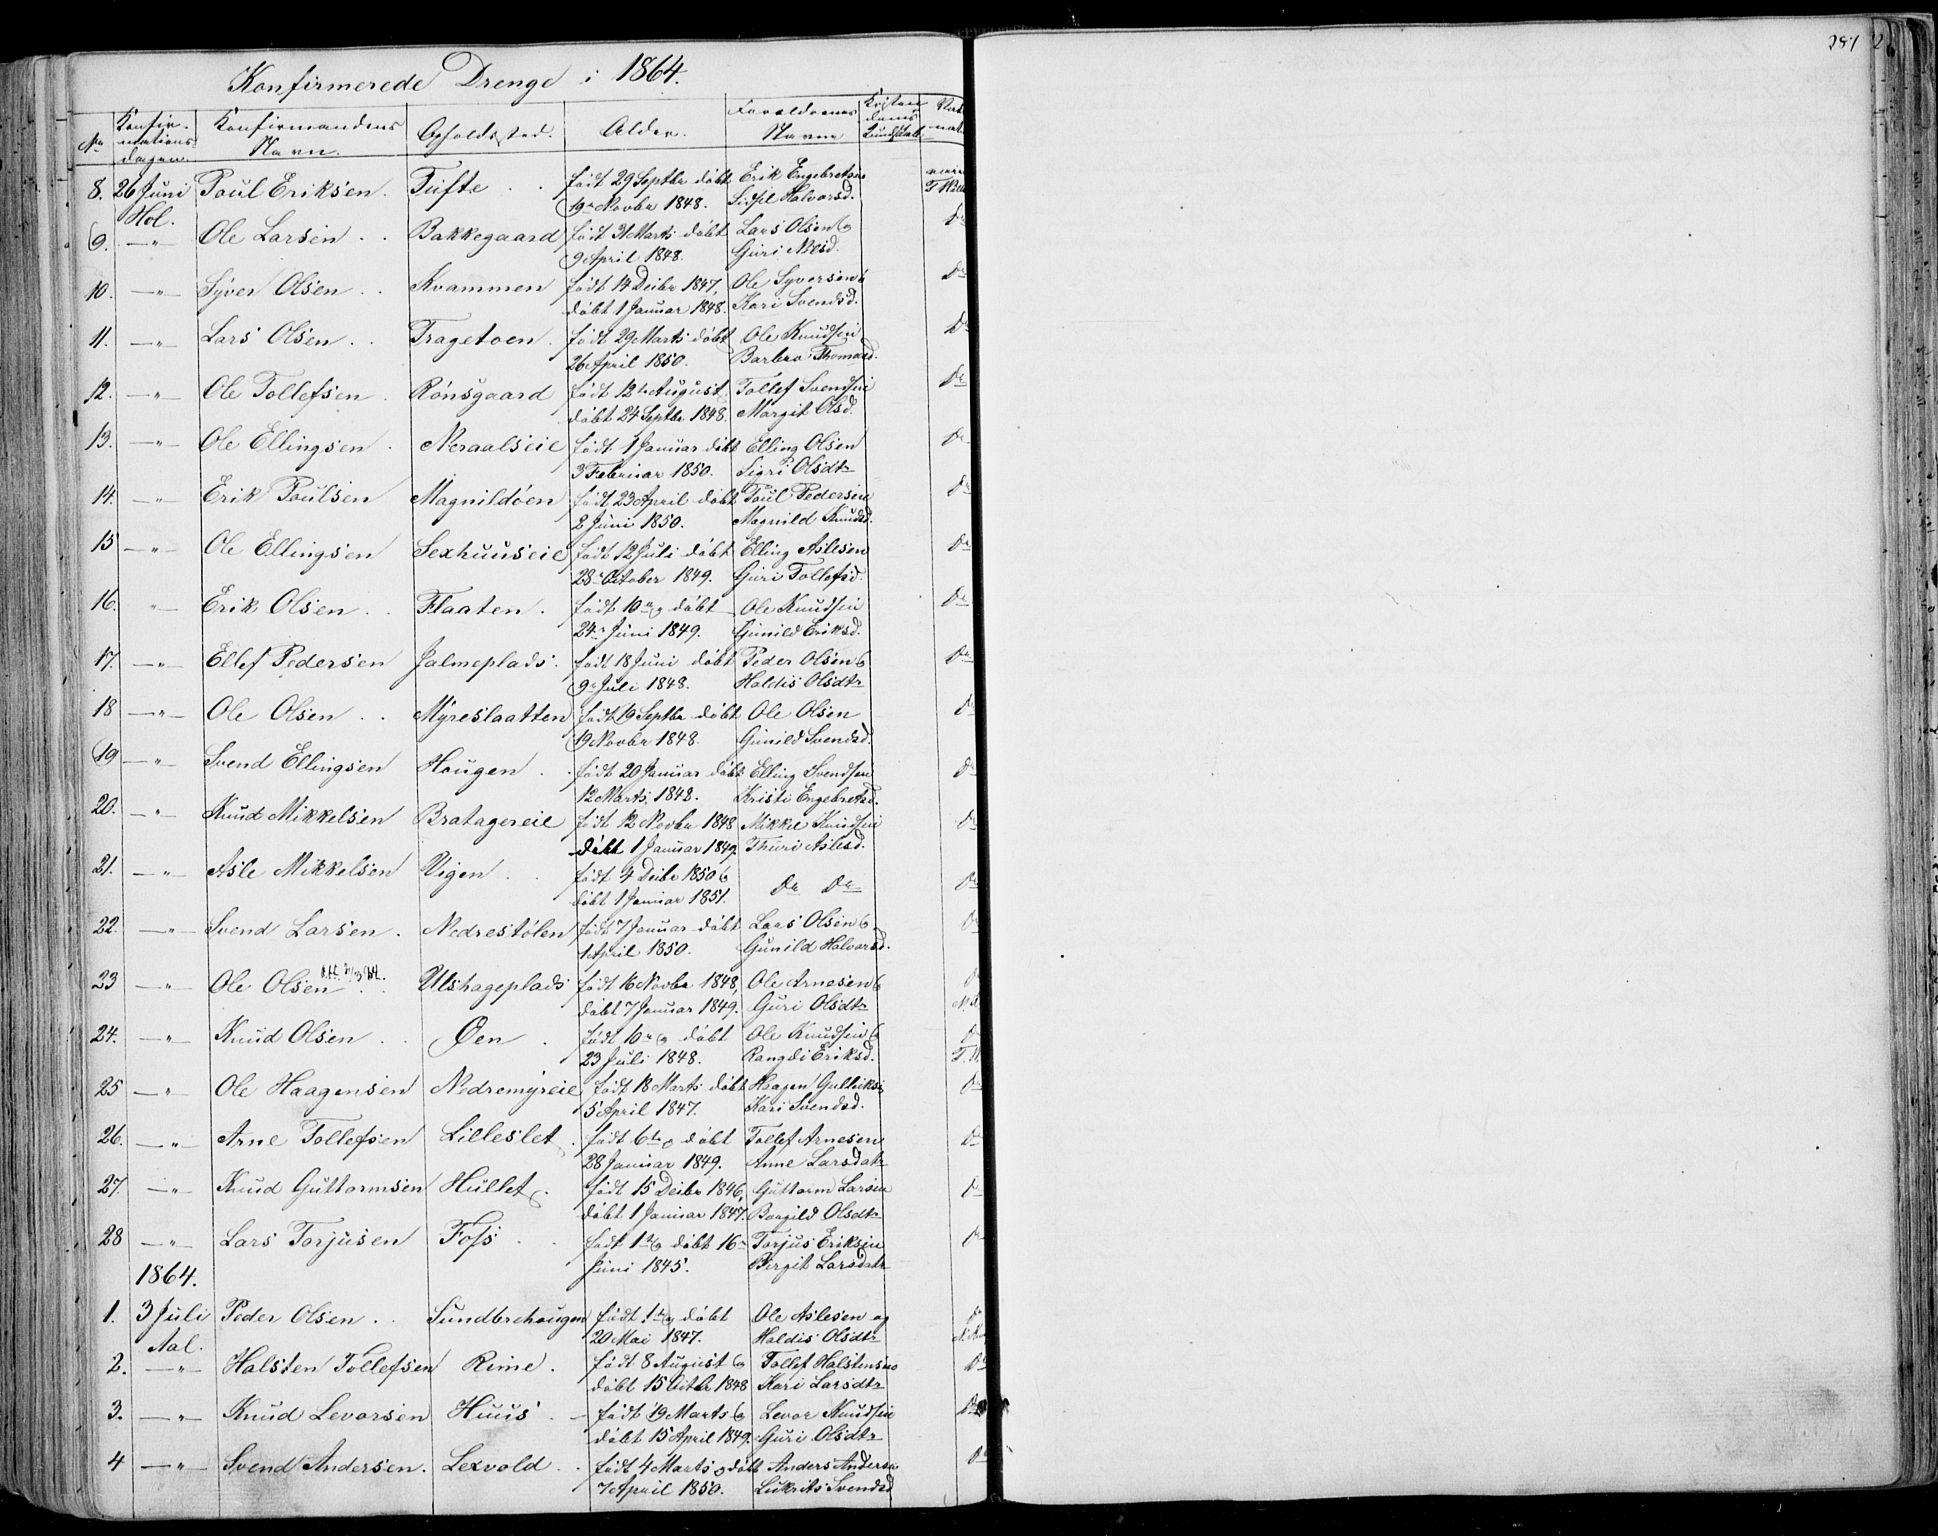 287
Konfirmerede Drenge i 1864.
No Konfirmationsdagen. Konfirmandens Navn. Opholdssted. Alder. Foreldrenes Navne
8. 26 Juni Poul Eriksen. Tufte født 29 Septbr døbt Erik Engebretsen
Hol. 19 Novbr 1848. Sidsil Halvorsd.
9. —"— Ole Larsen Bakkegaard født 31 Marts døbt Lars Olsen og
9 April 1848. Guri Nilsd.
10. —"— Syver Olsen Kvammen født 14 Decbr 1847, Ole Syversen
døbt 1 Januar 1848. Kari Svendsd.
11. —"— Lars Olsen Tragetoen født 29 Marts døbt Ole Knudsen
26 April 1850. Barbro Thomasd.
12. —"— Ole Tollefsen Rønsgaard født 12te August Tollef Svendsen
døbt 24 Septbr 1848. Margit Olsd.
13. —"— Ole Ellingsen Neraalseie født 1 Januar døbt Elling Olsen
3 Februar 1850. Sigri Olsdtr
14. —"— Erik Poulsen Magnildøen født 23 April døbt Poul Pedersen
2 Juni 1850. Magnild Knudsd.
15 —"— Ole Ellingsen Sexhuuseie født 12 Juli døbt Elling Aslesen
28 October 1849. Guri Tollefsd.
16. " Erik Olsen Flaaten født 10 og døbt Ole Knudsen
24 Juni 1849. Gunild Eriksd.
17. —"— Ellef Pedersen Jalmeplads født 18 Juni døbt Peder Olsen
9 Juli 1848. Haldis Olsdtr
18 —"— Ole Olsen Myreslaatten født 19 Septbr døbt Ole Olsen
19 Novbr 1848. Gunild Svendsd.
19 —"— Svend Ellingsen Hougen født 20 Januar døbt Elling Svendsen
12 Marts 1848. Kristi Engebretsd.
20. —"— Knud Mikkelsen Bratagereie født 12 Novbr 1848 Mikkel Knudsen
døbt 1 Januar 1849. Thuri Aslesd.
21. —"— Asle Mikkelsen Vigen født 4 Decbr 1850 Do Do
døbt 1 Januar 1851.
22. —"— Svend Larsen Nedrestølen født 7 Januar døbt Lars Olsen
1 April 1850. Gunild Halvorsd.
23 —"— Ole Olsen Ulshageplads født 16 Novbr 1848, Ole Arnesen
døbt 7 Januar 1849. Guri Olsdtr
24. —"— Knud Olsen Øen født 10 og døbt Ole Knudsen
23 Juli 1848. Rangdi Eriksd.
25 —"— Ole Haagensen Nedremyreie født 18 Marts døbt Haagen Gulleiks
5 April 1847. Kari Svendsd.
26. —"— Arne Tollefsen Lilleslet født 6te og døbt Tollef Arnesen
28 Januar 1849. Anne Larsdatr
27. —"— Knud Guttormsen Hullet født 15 Decbr 1846, Guttorm Larsen
døbt 1 Januar 1847. Bargild Olsdtr
28 —"— Lars Torjusen Foss født 1 og døbt 16 Torjus Eriksen
Juni 1845. Birgit Larsdatr
1864.
1. 3 Juli Peder Olsen Sundbrehougen født 1 og døbt Ole Aslesen og
Aal. 20 Mai 1847. Haldis Olsdtr
2. —"— Halsten Tollefsen Rime født 8 August og Tollef Halstensen
døbt 15 Octbr 1848 Kari Larsdtr
3. —"— Knud Levorsen Huus født 19 Marts og Levor Knudsen
døbt 15 April 1849. Guri Olsdtr
4 —"— Svend Andersen. Lexvold født 4 Marts og døbt Anders Anderse
7 April 1850. Lukrits Svendsd